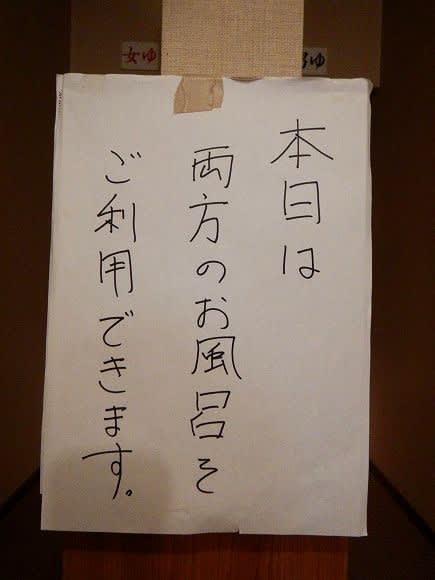 女ゆ
ゆ
本日は
両方のお風呂を
ご利用できます。